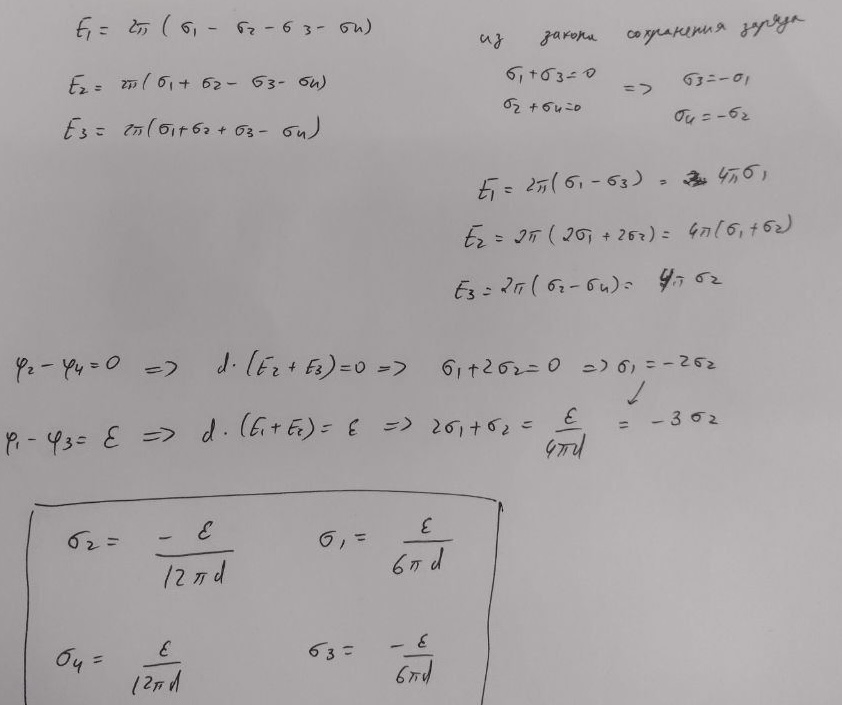 E₁ = 2π (σ₁ - σ₂ - σ₃ - σ₄)
E₂ = 2π (σ₁ + σ₂ - σ₃ - σ₄)
E₃ = 2π (σ₁ + σ₂ + σ₃ - σ₄)
из закона сохранения заряда
σ₁ + σ₃ = 0 => σ₃ = -σ₁
σ₂ + σ₄ = 0 σ₄ = -σ₂
E₁ = 2π (σ₁ - σ₃) = 4πσ₁
E₂ = 2π (2σ₁ + 2σ₂) = 4π (σ₁ + σ₂)
E₃ = 2π (σ₂ - σ₄) = 4π σ₂
φ₂ - φ₄ = 0 => d · (E₂ + E₃) = 0 => σ₁ + 2σ₂ = 0 => σ₁ = -2σ₂
φ₁ - φ₃ = ℰ => d · (E₁ + E₂) = ℰ => 2σ₁ + σ₂ = ℰ/4πd = -3σ₂
σ₂ = -ℰ/12πd σ₁ = ℰ/6πd
σ₄ = ℰ/12πd σ₃ = -ℰ/6πd